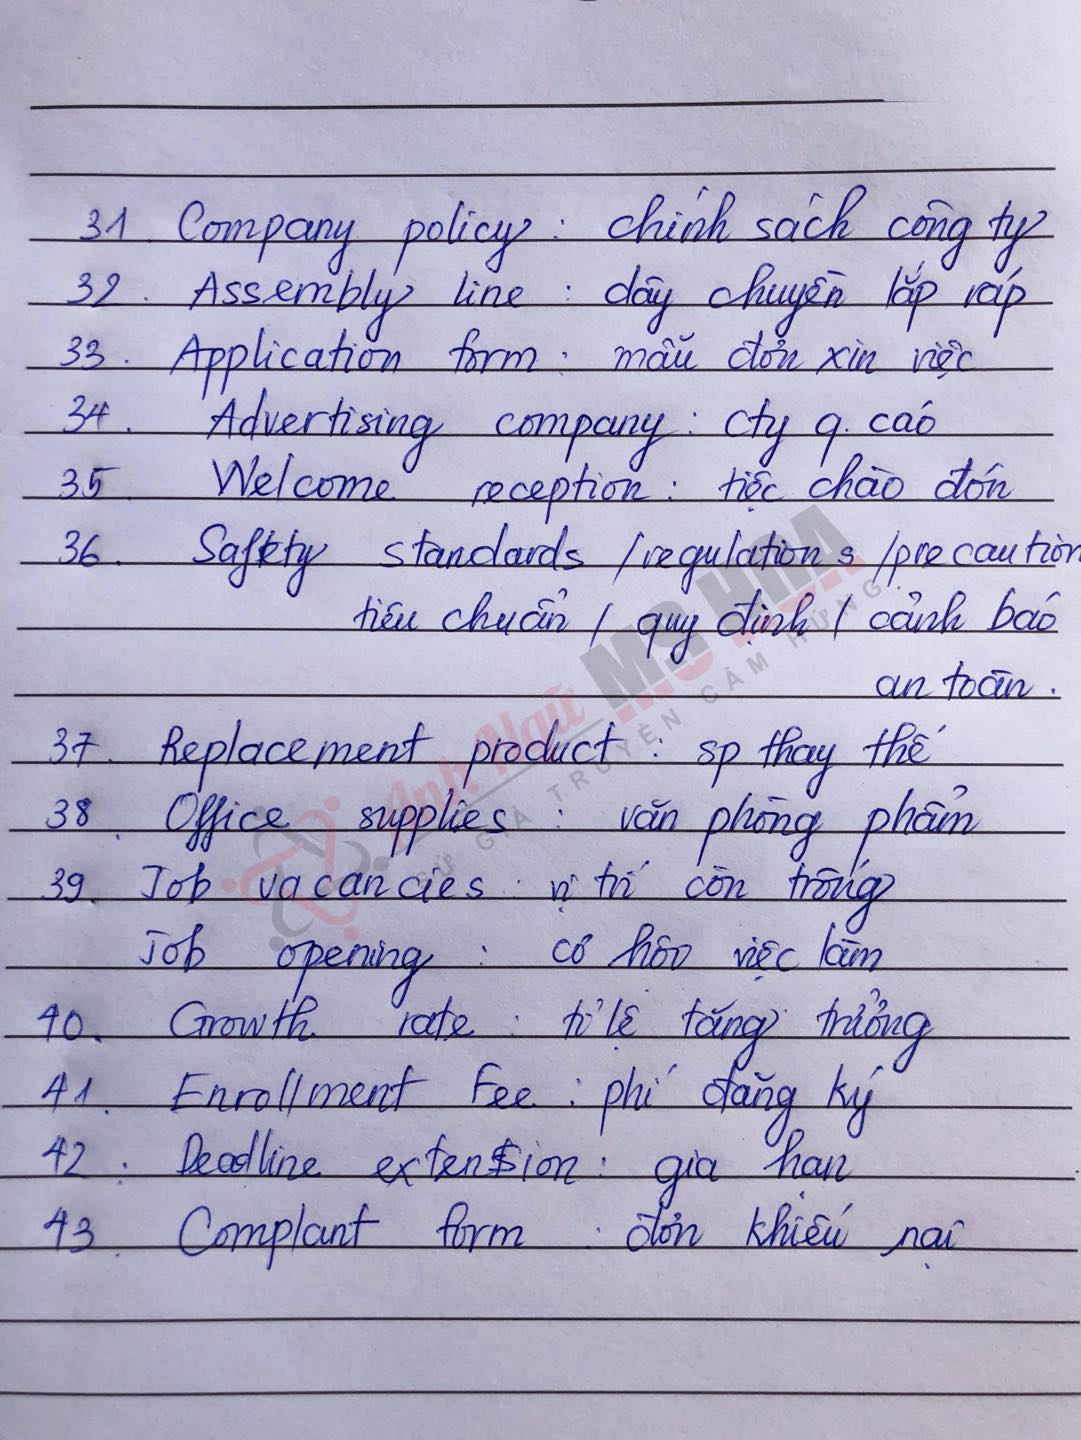 31. Company policy : chính sách công ty
32. Assembly line : dây chuyền lắp ráp
33. Application form : mẫu đơn xin việc
34. Advertising company : cty q. cáo
35. Welcome reception : tiệc chào đón
36. Safety standards /regulations /precaution
tiêu chuẩn / quy định / cảnh báo
an toàn.
37. Replacement product : sp thay thế
38. Office supplies : văn phòng phẩm
39. Job vacancies : vị trí còn trống
Job opening : cơ hội việc làm
40. Growth rate : tỉ lệ tăng trưởng
41. Enrollment Fee : phí đăng ký
42. Deadline extension : gia hạn
43. Complant form : đơn khiếu nại
Anh Ngữ MS HOA
SỨ GIẢ TRUYỀN CẢM HỨNG.